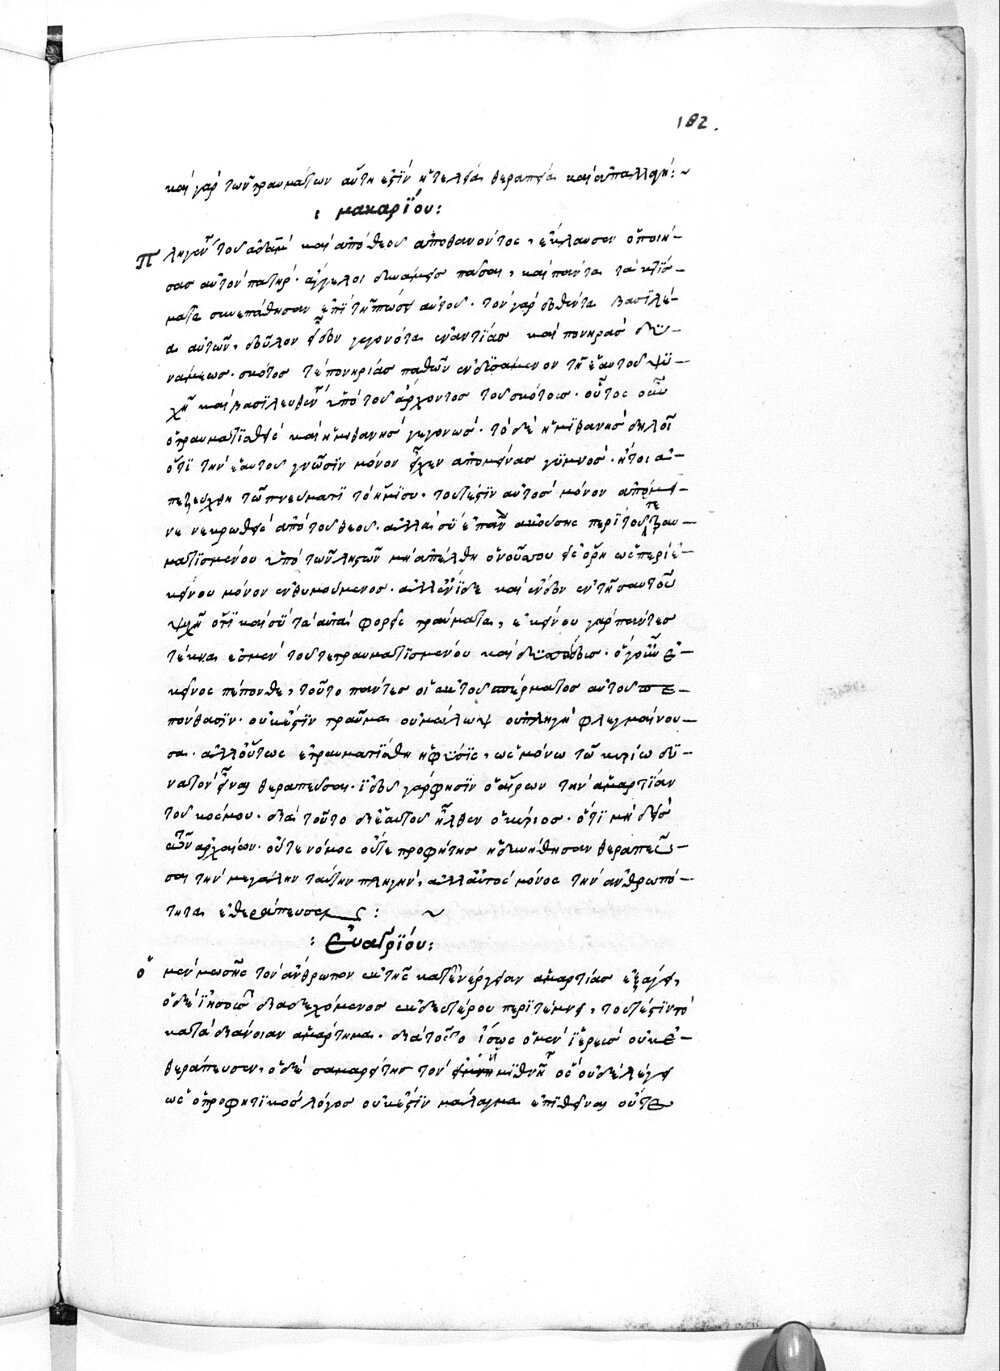 182.
καὶ γὰρ τῶν τραυμάτων αὕτη ἐστὶν ἡ τελεία θεραπεία καὶ ἀπαλλαγή: ~
: μακαρίου:
Πληγέντος τοῦ ἀδὰμ καὶ ἀπὸ θεοῦ ἀποθανόντος, ἔκλαυσεν ὁ ποιή-
σας αὐτὸν πατήρ· ἄγγελοι δυνάμεις πᾶσαι, καὶ πάντα τὰ κτίσ-
ματα συνεπάθησαν ἐπὶ τῇ πτώσει αὐτοῦ· τὸν γὰρ δοθέντα βασιλέ-
α αὐτῶν, δοῦλον εἶδον γεγονότα ἐναντίας καὶ πονηρᾶς δυ-
νάμεως· σκότος τε πονηρίας παθῶν ἐνδυσάμενον τῇ ἑαυτοῦ ψυ-
χῇ καὶ βασιλευθεὶς ὑπὸ τοῦ ἄρχοντος τοῦ σκότους· οὗτος οὖν
ὁ τραυματιαθεὶς καὶ ἡμιθανὴς γεγονώς· τὸ δὲ ἡμιθανὴς δηλοῖ
ὅτι τὴν ἑαυτοῦ γνῶσιν μόνον εἶχεν ἀπομείνας γυμνός· ἤτοι ἀ-
πεζεύχθη τῶ πνεύματι τὸ ἥμισυ· τουτέστιν αὐτὸς μόνον ἀπέμει-
νε νεκρωθεὶς ἀπὸ τοῦ θεοῦ· ἀλλὰ σὺ ἐπὰν ἀκούσῃς περὶ τοῦ τετραυ-
ματισμένου ὑπὸ τῶν ληστῶν μὴ ἀπέλθῃ ὁ νοῦς σου εἰς ὄρη ὡς περὶ ἐ-
κείνου μόνον ἐνθυμούμενος· ἀλλ' ἔνιδε καὶ ἔνδον ἐν τῇ σαυτοῦ
ψυχῇ ὅτι καὶ σὺ τὰ αὐτὰ φορεῖς τραύματα, ἐκείνου γὰρ πάντες
τέκνα ἐσμὲν τοῦ τετραυματισμένου καὶ
κεῖνος πέπονθε, τοῦτο πάντες οἱ ἐκ τοῦ σπέρματος αὐτοῦ πε-
πόνθασιν· οὐκ ἔστιν τραῦμα οὐ μώλωψ οὐ πληγὴ φλεγμαίνου-
σα· ἀλλ' οὕτως ἐτραυματίαθη ἡ φύσις, ὡς μόνω τῶ κυρίω δυ-
νατὸν εἶναι θεραπεῦσαι· ἰδοὺ γάρ φησιν ὁ αἴρων τὴν ἁμαρτίαν
τοῦ κόσμου· διὰ τοῦτο δι' ἑαυτοῦ ἦλθεν ὁ κύριος· ὅτι μηδεὶς
τῶν ἀρχαίων· οὔτε νόμος οὔτε προφήτης ἠδυνήθησαν θεραπεῦ-
σαι τὴν μεγάλην ταύτην πληγήν, ἀλλ' αὐτὸς μόνος τὴν ἀνθρωπό-
τητα ἐθεράπευσε : ~
: Εὐαγρίου:
ὁ μὲν μωσῆς τὸν ἄνθρωπον ἐκ τῆς κατ' ἐνέργειαν ἁμαρτίας ἐξάγει,
ὁ δὲ ἰησοῦς διαδεχόμενος ἐκ δευτέρου περιτέμνει, τουτέστιν τὸ
κατὰ διάνοιαν ἁμάρτημα· διὰ τοῦτο ἴσως ὁ μὲν ἱερεὺς οὐκ ἐ-
θεράπευσεν, ὁ δὲ σαμαρείτης τὸν ἡμιθανῆ
ὡς ὁ προφητικὸς λόγος οὐκ ἔστιν μάλαγμα ἐπιθεῖναι οὔτε